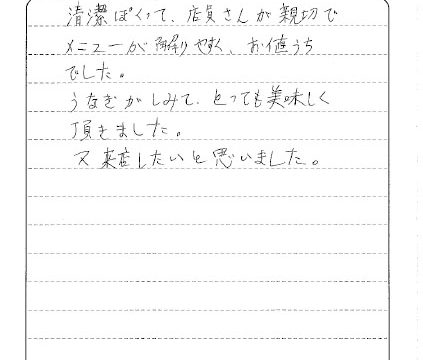 清潔ぽくって、店員さんが親切で
メニューが解りやすく、お値うち
でした。
うなぎがしみて、とっても美味しく
頂きました。
又来店したいと思いました。